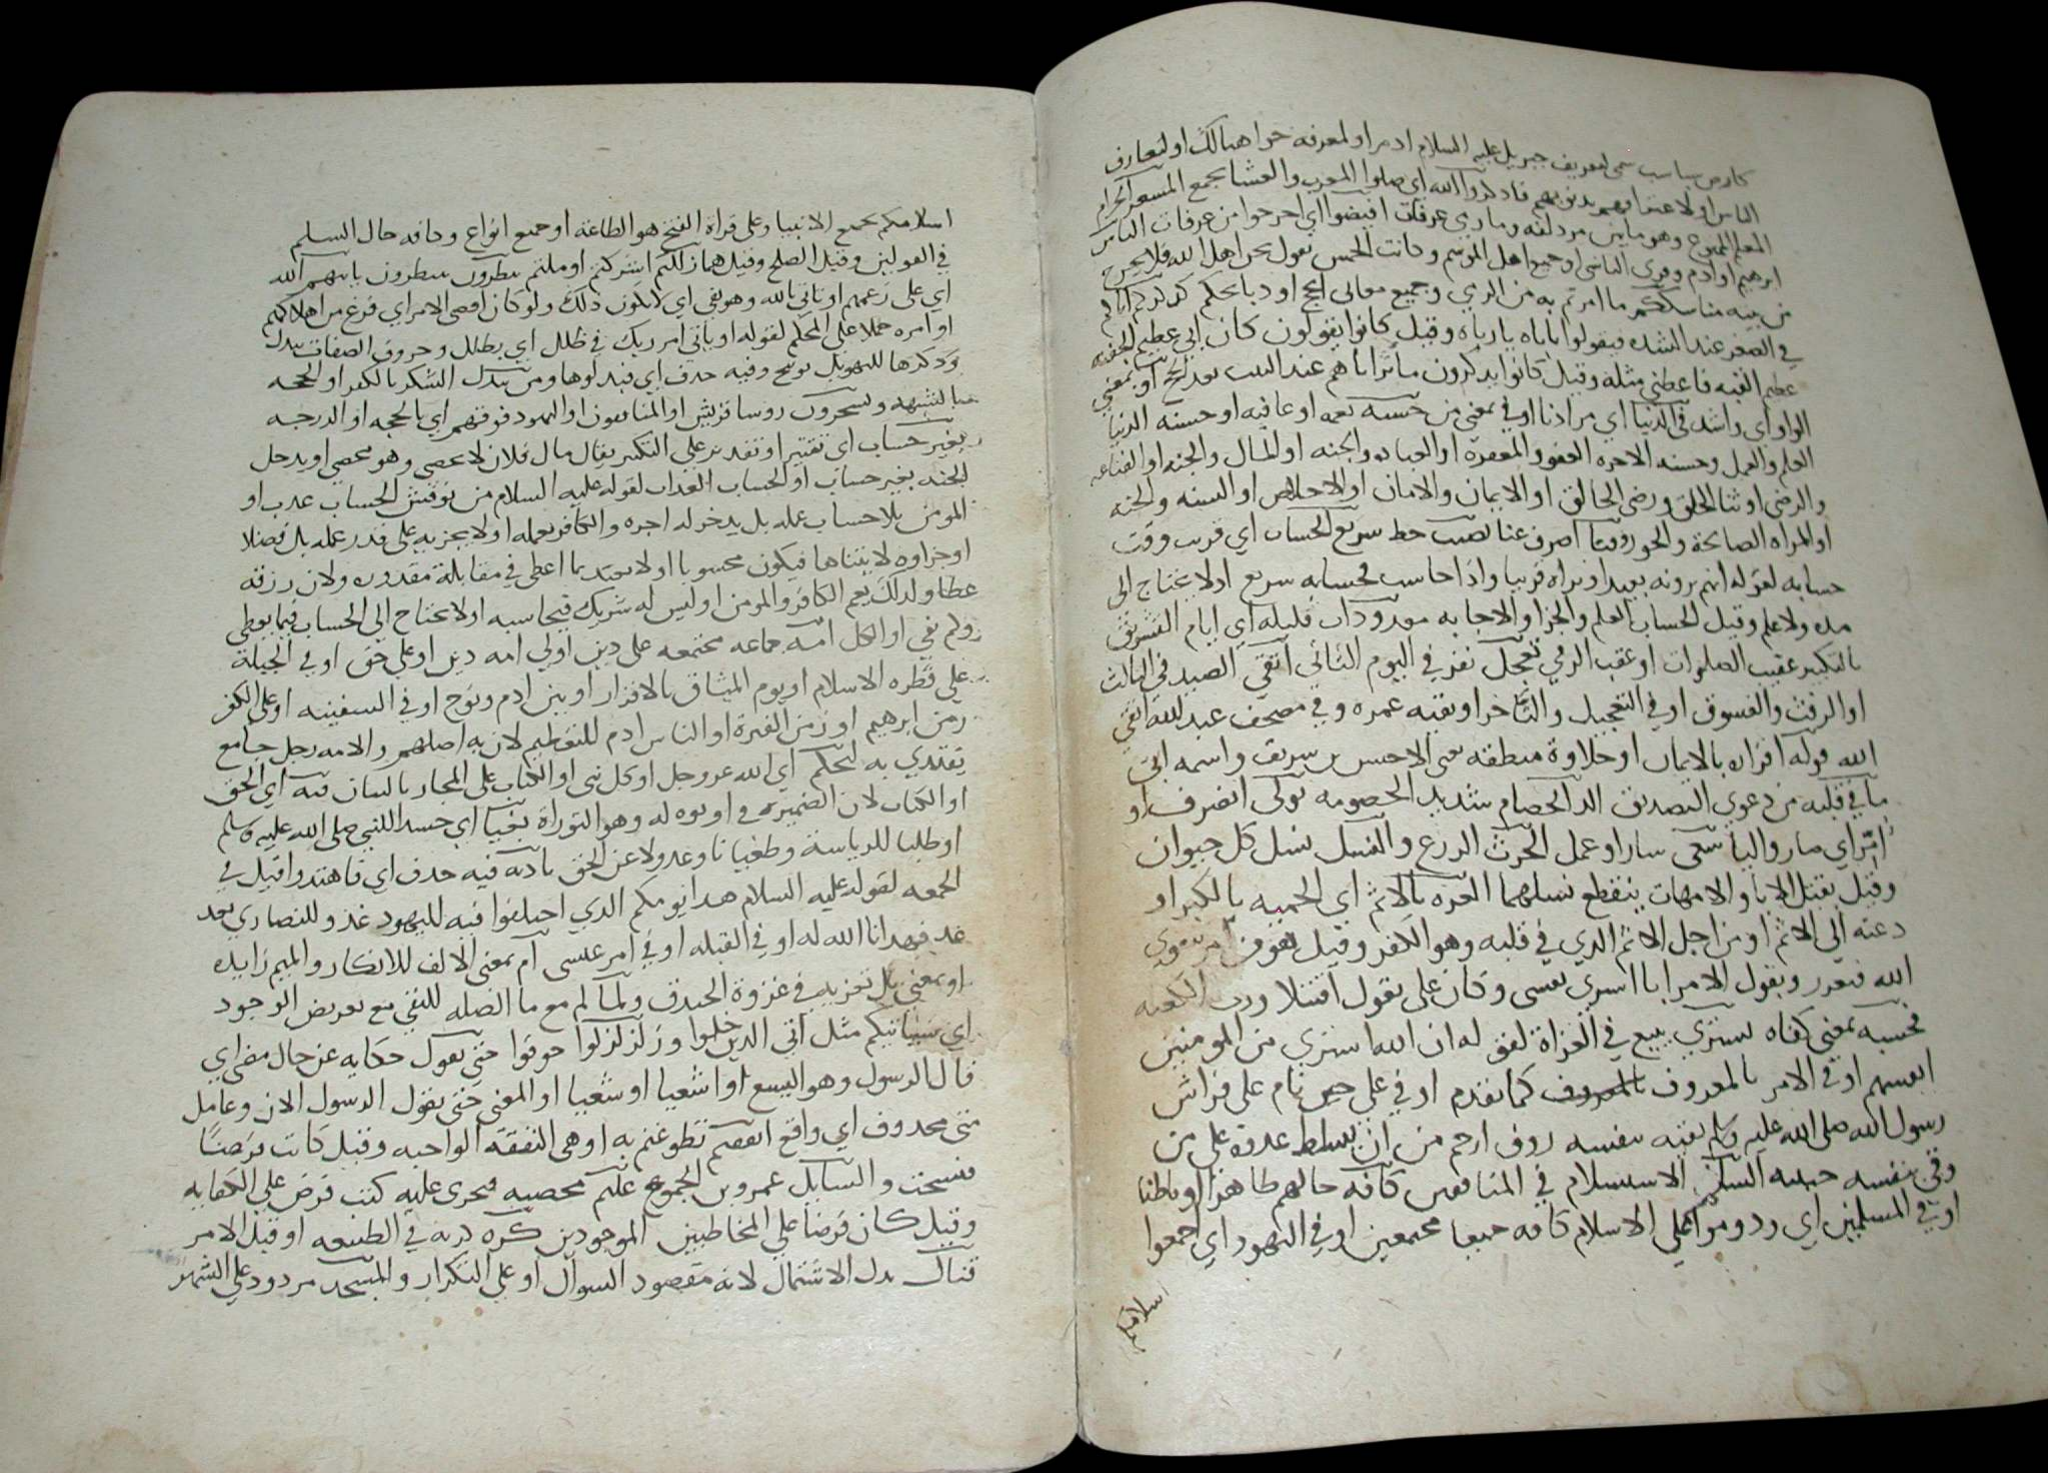 الناس اولاعترافهم بذنوبهم فاذكروا الله اي صلوا المغرب والعشا بجمع المشعر الحرام
المعلم وهو مابين مزدلفه عرفات افيضوا اي اخرجوا من عرفات الناس
ابرهيم او ادم وقرى الناسى او جميع اهل الموسم وكانت الحمس تقول نحن اهل الله فلا نخرج
من بيته مناسككم ما امرتم به من الرمي وجميع معاني الحج او ذبايحكم كذكركم اباكم
في الصغر عند الشده فيقولوا يااباه يارباه وقيل كانوا يقولون كان ابي عظيم الجفنه
عظيم القبه فاعطني مثله وقيل كانوا يذكرون ماثر اباهم عند البيت بعد الحج او بمعني
الواو اي واشد في الدنيا اي مرادنا او في بمعني من حسنه نعمه او عافيه او حسنه الدنيا
العلم والعمل وحسنه الاخره العفو والمغفرة او العباده والجنه او المال والجنه او القناعه
والرضى او ثنا الخلق ورضى الخالق او الايمان والامان او الاخلاص او السنه والجنه
او المراه الصالحة والحور وقنا اصرف عنا نصيب حظ سريع الحساب اي قريب وقت
حسابه لقوله انهم يرونه بعيدا ونراه قريبا واذا حاسب فحسابه سريع اولا يحتاج الى
مده ولا علم وقيل الحساب العلم والجزا والاجابه معدودات قليله اي ايام التشريق
بالتكبير عقيب الصلوات او عقب الرمي تعجل نفر في اليوم الثاني اتقي الصيد في الثالث
او الرفث والفسوق او في التعجيل والتاخر او بقيه عمره وفي مصحف عبد الله اتقي
الله قوله اقراره بالايمان او حلاوة منطقه يعنى الاخنس بن شريق واسمه ابي
ما في قلبه من دعوي التصديق الد الخصام شديد الخصومه تولى انصرف او
امر اي صار واليا سعى سار او عمل الحرث الزرع والنسل نسل كل حيوان
وقيل بقتل الابا والامهات ينقطع نسلهما العزه بالاثم اي الحميه بالكبر او
دعته الي الاثم او من اجل الاثم الذي في قلبه وهو الكفر وقيل يفوض امر بتقوى
الله فيغرر ويقول الامر ابا اسرى نفسى وكان على يقول اقتتلا ورب الكعبه
فحسبه بمعنى كفاه يشتري يبيع في الغزاة لقوله ان الله اشترى من المومنين
انفسهم او في الامر بالمعروف كما تقدم او في علي حين نام علي فراش
رسول الله صلى الله عليه وسلم يقيه بنفسه روف ارحم من ان يسلط عدوه على من
وقى بنفسه حبيبه السلم الاستسلام في المنافقين كافه حالهم ظاهرا وباطنا
او في المسلمين اي ردوموا على الاسلام كافه جميعا مجتمعين او في اليهود اي اجمعوا
اسلامكم
اسلامكم بجميع الانبيا وعلى قراة الفتح هو الطاعة او جميع انواع وكافه حال السلم
في القولين وقيل الصلح وقيل هما زللتم اشركتم او ملتم ينظرون ينتظرون ياتيهم الله
اي على زعمهم او ياتي بالله وهو نفي اي لايكون ذلك ولو كان لقضى الامر اي فرغ من اهلاكهم
او امره حملا على المحكم لقوله او ياتي امر ربك في ظلل اي بظلل وحروف الصفات تبدل
وذكرها للتهويل توبيخ وفيه حذف اي فبدلوها ومن يبدل الشكر بالكفر او الحجه
بالشبهه ويسخرون روسا قريش او المنافقون او اليهود فوقهم اي بالحجه او الدرجه
بغير حساب اي تقتير او تقدير على التكثير يقال مال فلان لا يحصى وهو محصي او يدخل
الجنه بغير حساب او الحساب العذاب لقوله عليه السلام من نوقش الحساب عذب او
المومن بلا حساب عمله بل يدخر له اجره والكافر بعمله او لا يجزيه على قدر عمله بل فضلا
او جزاوه لا يتناها فيكون محسوبا او لا يعتد بما اعطى في مقابلة مقدوره ولان رزقه
عطا ولذلك يعم الكافر والمومن او ليس له شريك فيحاسبه او لا يحتاج الى الحساب فيما يعطي
ولم نفي او الكل امة جماعه مجتمعه على دين اولي امه دين او على حق او في الجبلة
على فطره الاسلام او يوم الميثاق بالاقرار او بين ادم ونوح او في السفينه او على الكفر
زمن ابرهيم او زمن الفترة او الناس ادم للتعظيم لان به اصلهم والامه رجل جامع
يقتدي به ليحكم اي الله عز وجل او كل نبى او الكتاب على المجاز بالبيان فيه اي الحق
او الكتاب لان الضمير في اوتوه له وهو التوراة بغيا اي حسدا للنبي صلى الله عليه وسلم
او طلبا للرياسة وطغيانا وعدولا عن الحق باذنه فيه حذف اي فاهتدوا قيل في
الجمعه لقوله عليه السلام هذا يومكم الذي اختلفوا فيه لليهود غد وللنصاري بعد
غد فهدانا الله له او في القبله او في امر عيسى ام بمعنى الالف للانكار والميم زايده
او بمعني بل نحزيب في غزوة الخندق ولما لم مع ما الصله للنفي مع تعريض الوجود
اي سياتيكم مثل اتي الذين خلوا وزلزلوا خوفوا حتى يقول حكايه عن حال مضى اي
قال الرسول وهو اليسع او اشعيا او شعيا او المعنى حتى يقول الرسول الان وعامل
متى محذوف اي واقع انفقتم تطوعتم به او هي النفقه الواجبه وقيل كانت فرضا
فنسخت والسايل عمرو بن الجموح عليم محصيه فيجزي عليه كتب فرض علي الكفايه
وقيل كان فرضا على المخاطبين الموجودين كره كريه في الطبيعه او قبل الامر
قتال بدل الاشتمال لانه مقصود السوال او علي التكرار والمسجد مردود علي الشهر